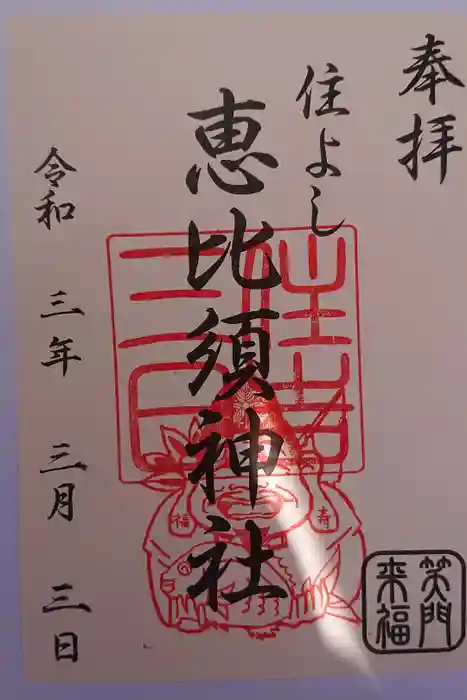 奉拝
住よし
恵比須神社
令和 三年 三月 三日
福
寿
笑門
来福